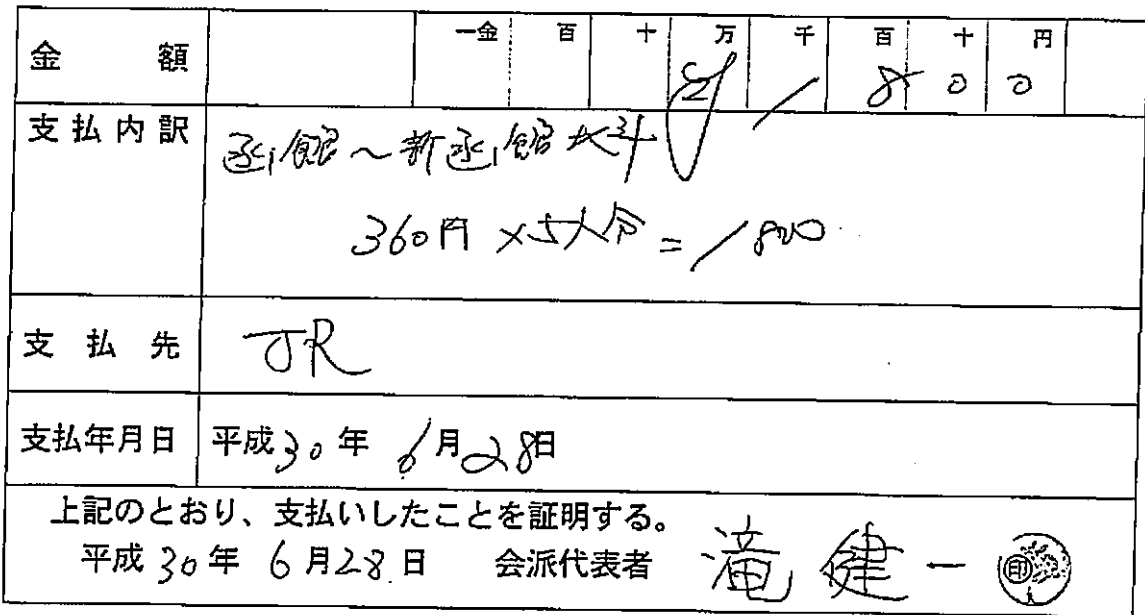 金額 一金 百 十 万 千 百 十 円
1 8 0 0
支払内訳 函館～新函館北斗
360円×5人分=1800
支払先 JR
支払年月日 平成30年 6月28日
上記のとおり、支払いしたことを証明する。
平成30年 6月28日 会派代表者 滝 健一 印